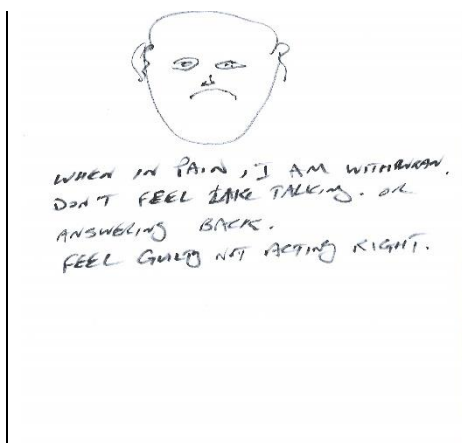 WHEN IN PAIN, I AM WITHDRAWN.
DON'T FEEL LAKE TALKING. OR
ANSWERING BACK.
FEEL GUILTY NOT ACTING RIGHT.